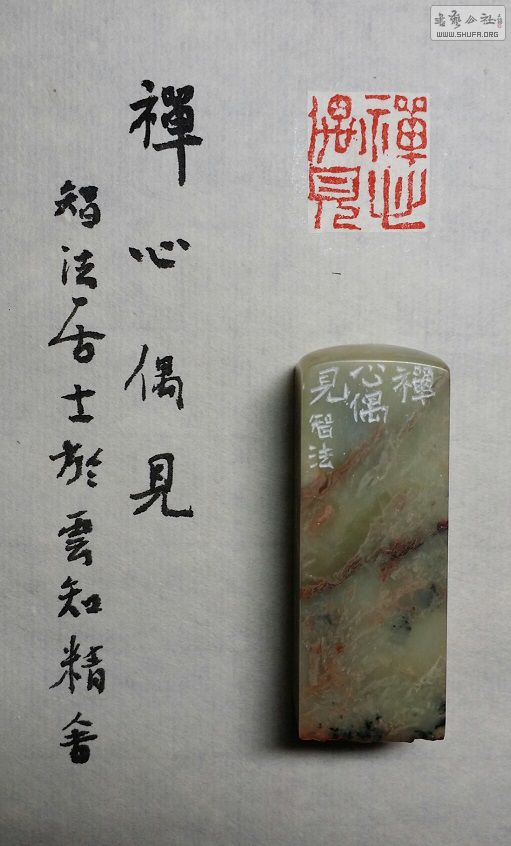 禪心偶見
智法居士於雲知精舍
禪心
偶見
禪
心偶
見智法
書藝公社
WWW.SHUFA.ORG